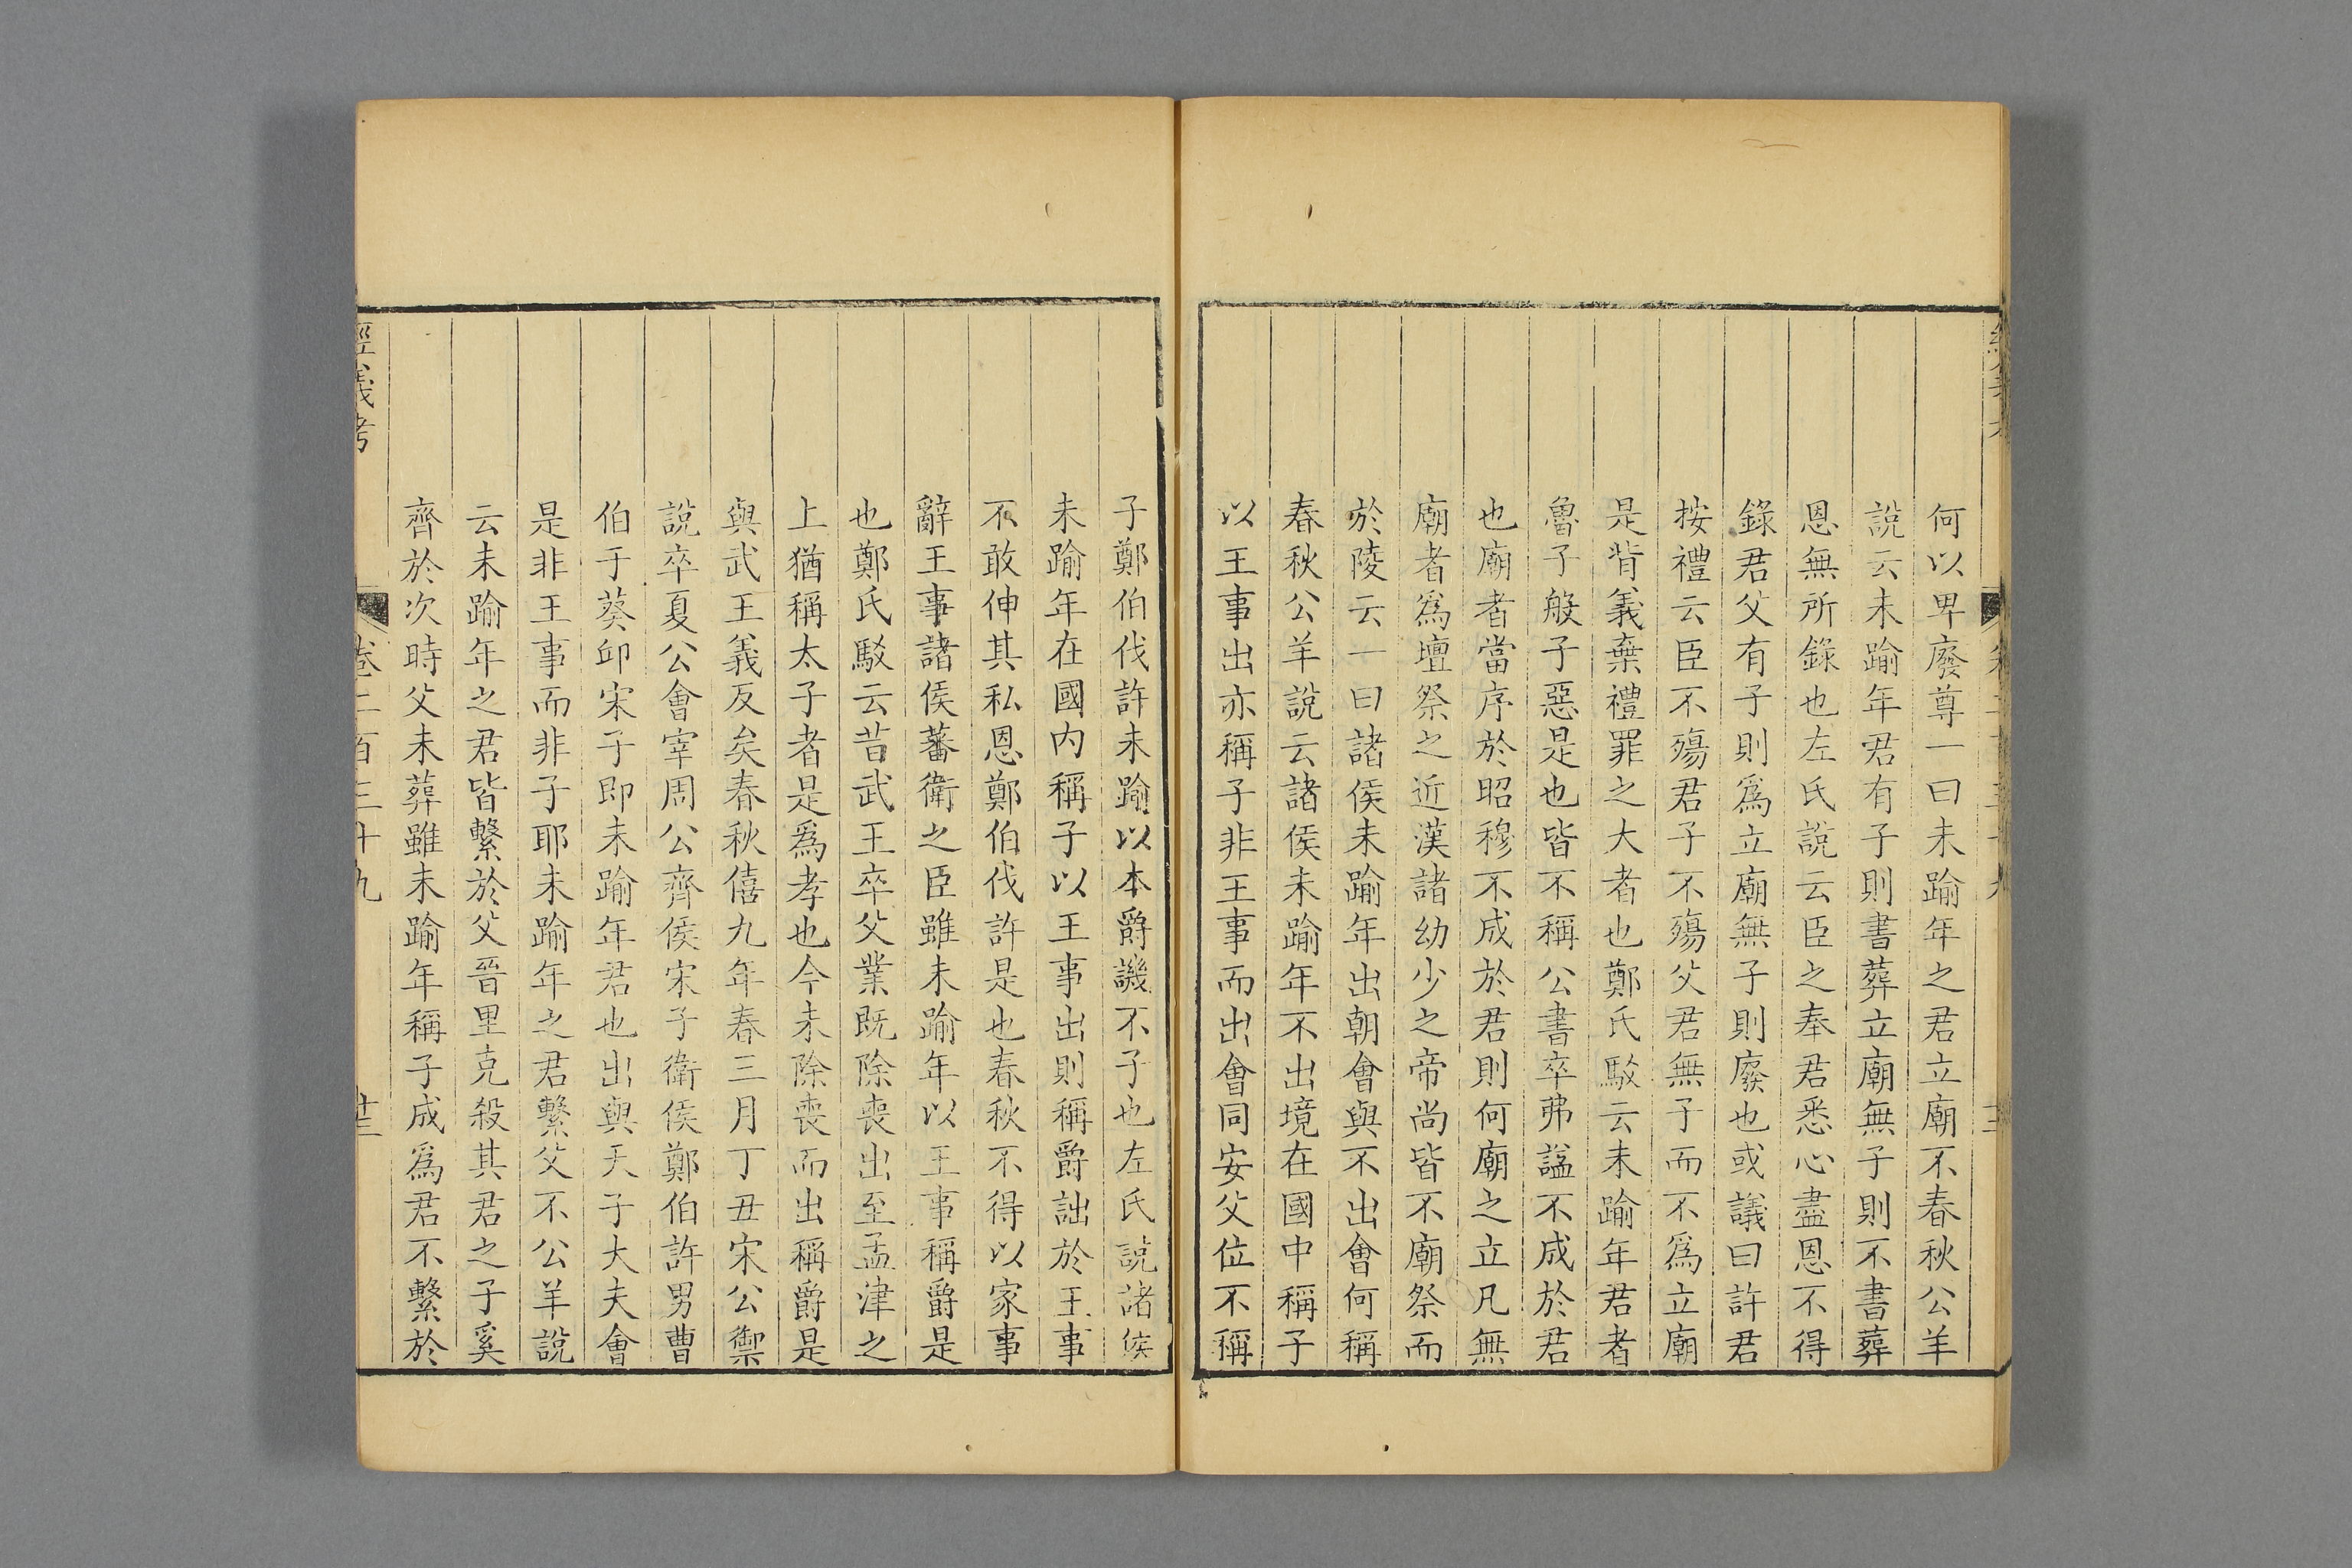 何以卑廢尊一曰未踰年之君立廟不春秋公羊
說云未踰年君有子則書葬立廟無子則不書葬
恩無所錄也左氏說云臣之奉君悉心盡恩不得
錄君父有子則爲立廟無子則廢也或議曰許君
按禮云臣不殤君子不殤父君無子而不爲立廟
是背義棄禮罪之大者也鄭氏駁云未踰年君者
魯子般子惡是也皆不稱公書卒弗謚不成於君
也廟者當序於昭穆不成於君則何廟之立凡無
廟者爲壇祭之近漢諸幼少之帝尚皆不廟祭而
於陵云一曰諸侯未踰年出朝會與不出會何稱
春秋公羊說云諸侯未踰年不出境在國中稱子
以王事出亦稱子非王事而出會同安父位不稱
子鄭伯伐許未踰以本爵譏不子也左氏說諸侯
未踰年在國內稱子以王事出則稱爵詘於王事
不敢伸其私恩鄭伯伐許是也春秋不得以家事
辭王事諸侯蕃衛之臣雖未踰年以王事稱爵是
也鄭氏駁云昔武王卒父業既除喪出至孟津之
上猶稱太子者是爲孝也今未除喪而出稱爵是
與武王義反矣春秋僖九年春三月丁丑宋公禦
說卒夏公會宰周公齊侯宋子衛侯鄭伯許男曹
伯于葵邱宋子即未踰年君也出與天子大夫會
是非王事而非子耶未踰年之君繫父不公羊說
云未踰年之君皆繫於父晉里克殺其君之子奚
齊於次時父未葬雖未踰年稱子成爲君不繫於
經義考
卷二百三十九
十三